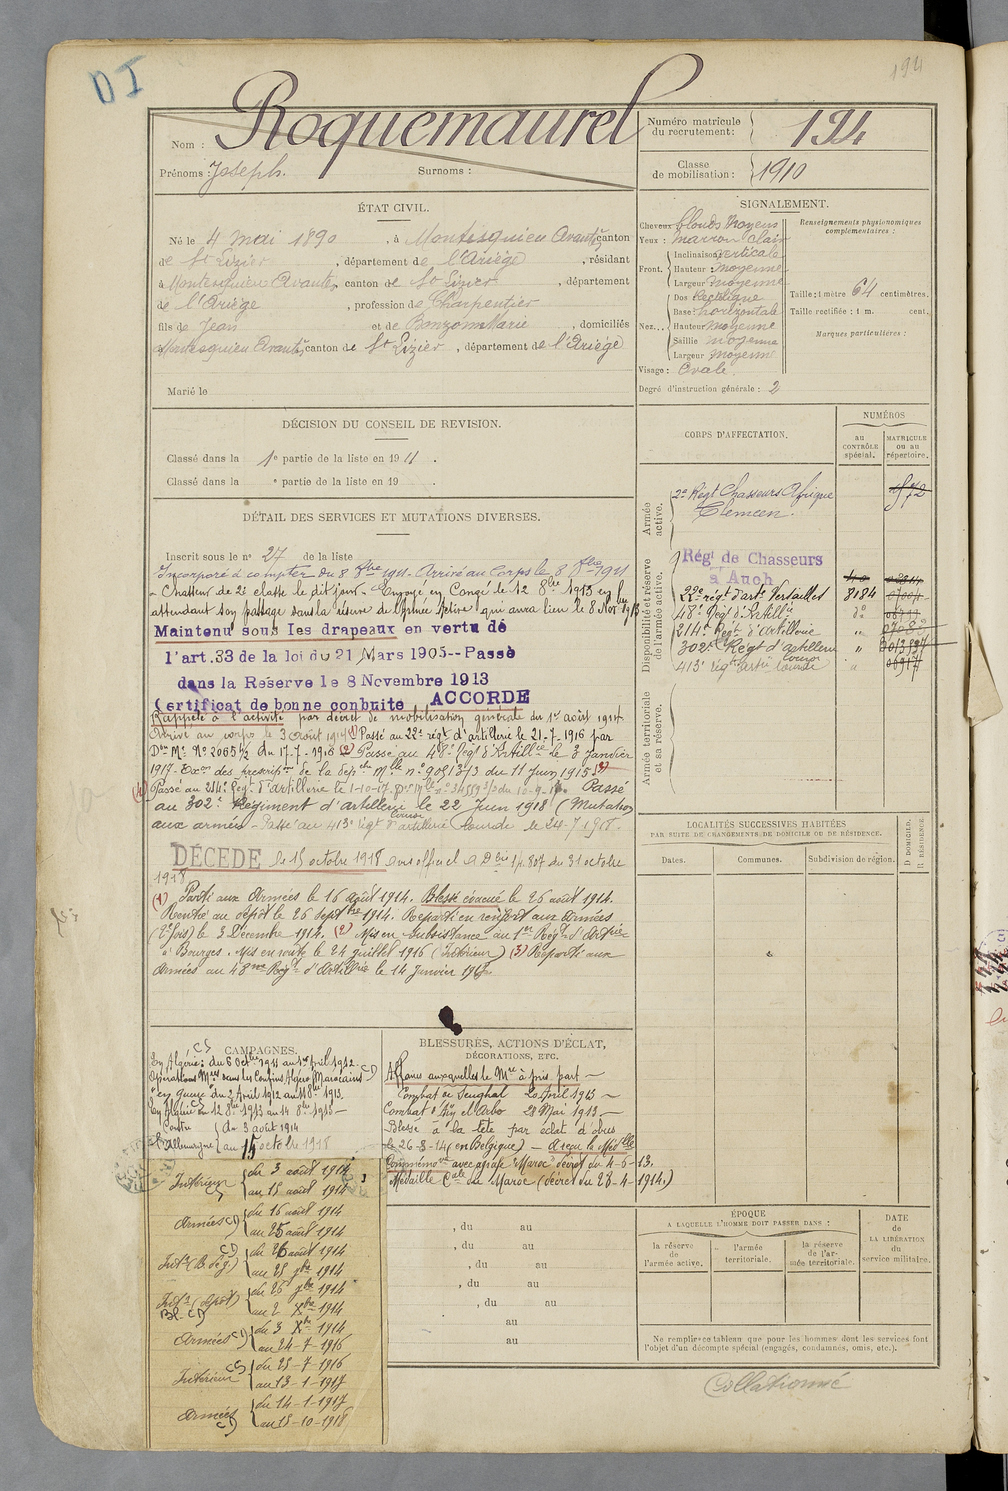 DI
194
Nom : Roquemaurel
Prénoms : Joseph. Surnoms :
Numéro matricule du recrutement : 194
Classe de mobilisation : 1910
ÉTAT CIVIL.
Né le 4 mai 1890, à Montesquieu Avantès canton
de St Lizier, département de l'Ariège, résidant
à Montesquieu Avantès, canton de St Lizier, département
de l'Ariège, profession de Charpentier
fils de Jean et de Bonzom Marie, domiciliés
à Montesquieu Avantès, canton de St Lizier, département de l'Ariège
Marié le
SIGNALEMENT.
Cheveux blonds moyens
Yeux : marron clair
Front. Inclinaison verticale
Hauteur : moyenne
Largeur moyenne
Nez. Dos Rectiligne
Base : horizontale
Hauteur moyenne
Saillie moyenne
Largeur moyenne
Visage : Ovale.
Degré d'instruction générale : 2
Renseignements physionomiques complémentaires :
Taille : 1 mètre 64 centimètres.
Taille rectifiée : 1 m. cent.
Marques particulières :
DÉCISION DU CONSEIL DE REVISION.
Classé dans la 1e partie de la liste en 1911.
Classé dans la e partie de la liste en 19 .
DÉTAIL DES SERVICES ET MUTATIONS DIVERSES.
Inscrit sous le no 27 de la liste
Incorporé à compter du 8 8bre 1911. Arrivé au Corps le 8 8bre 1911
Chasseur de 2e classe le dit jour. Envoyé en Congé le 12 8bre 1913 en
attendant son passage dans la réserve de l'armée active qui aura lieu le 8 Nov bre 1913
Maintenu sous les drapeaux en vertu de
l'art. 33 de la loi du 21 Mars 1905--Passé
dans la Réserve le 8 Novembre 1913
Certificat de bonne conduite ACCORDÉ
Rappelé à l'activité par décret de mobilisation générale du 1er août 1914
Arrivé au corps le 3 août 1914 (1) Passé au 22e régt d'artillerie le 21-7-1916 par
Don Mle No 20651/2 du 17-7-1916 (2) Passé au 48e Régt d'Artillie le 3 Janvier
1917. Exon des prescripons de la dépche Mlle no 9051 3/3 du 11 Juin 1915 (3)
(4) Passé au 214e Régt d'Artillerie le 1-10-17. Passé
au 302e Régiment d'artillerie le 22 Juin 1918 (Mutation
aux armées - Passé au 413e régt d'artillerie lourde le 24-7-1918.
DÉCÉDÉ le 15 octobre 1918 avis officiel du 31 octobre
1918
(1) Parti aux Armées le 16 août 1914. Blessé évacué le 26 août 1914.
Rentré au dépôt le 26 septbre 1914. Reparti en renfort aux Armées
(2e fois) le 3 Décembre 1914. (2) Mis en subsistance au 1er Régt d'Artrie
à Bourges. Mis en route le 24 juillet 1916 (Intérieur) (3) Reparti aux
Armées au 48me Régt d'Artillerie le 14 Janvier 1917.
CORPS D'AFFECTATION.
NUMÉROS
au CONTRÔLE spécial.
MATRICULE ou au répertoire.
Armée active.
2e Régt Chasseurs Afrique 1572
Tlemcen.
Disponibilité et réserve de l'armée active.
Régt de Chasseurs
à Auch
22e régt d'artie Versailles 8184
48e Régt d'Artillie do
214e Régt d'Artillerie "
302e Régt d'artillerie "
413e régt Artie lourde "
Armée territoriale et sa réserve.
LOCALITÉS SUCCESSIVES HABITÉES
PAR SUITE DE CHANGEMENTS DE DOMICILE OU DE RÉSIDENCE.
Dates. Communes. Subdivision de région.
D DOMICILE. R RÉSIDENCE.
CAMPAGNES.
En Algérie : du 6 Octbre 1911 au 1er Avril 1912.
Opérations Mres dans les Confins Algéro Marocains
"en guerre" du 2 Avril 1912 au 11 8bre 1913.
En Algérie du 12 8bre 1913 au 14 8bre 1913
Contre l'Allemagne du 3 août 1914
au 15 octobre 1918
Intérieur du 3 août 1914
au 15 août 1914
Armées du 16 août 1914
au 25 août 1914
du 26 août 1914
au 25 7bre 1914
Intr (dépôt) du 26 7bre 1914
au 2 Xbre 1914
Armées du 3 Xbre 1914
au 24-7-1916
Intérieur du 25-7-1916
au 13-1-1917
Armées du 14-1-1917
au 15-10-1918
BLESSURES, ACTIONS D'ÉCLAT,
DÉCORATIONS, ETC.
Affaires auxquelles le Mre a pris part
Combat de Teughal 20 Avril 1913
Combat d'Aïn el Arbo 28 Mai 1913
Blessé à la tête par éclat d'obus
le 26-8-14 (en Belgique) - A reçu la Médlle
Commémve avec agrafe "Maroc" décret du 4-6-13.
Médaille Cale du Maroc (décret du 23-4-1914.)
, du au
, du au
, du au
, du au
, du au
au
au
ÉPOQUE
A LAQUELLE L'HOMME DOIT PASSER DANS :
la réserve de l'armée active.
l'armée territoriale.
la réserve de l'armée territoriale.
DATE de LA LIBÉRATION du service militaire.
Ne remplir ce tableau que pour les hommes dont les services font
l'objet d'un décompte spécial (engagés, condamnés, omis, etc.).
Collationné